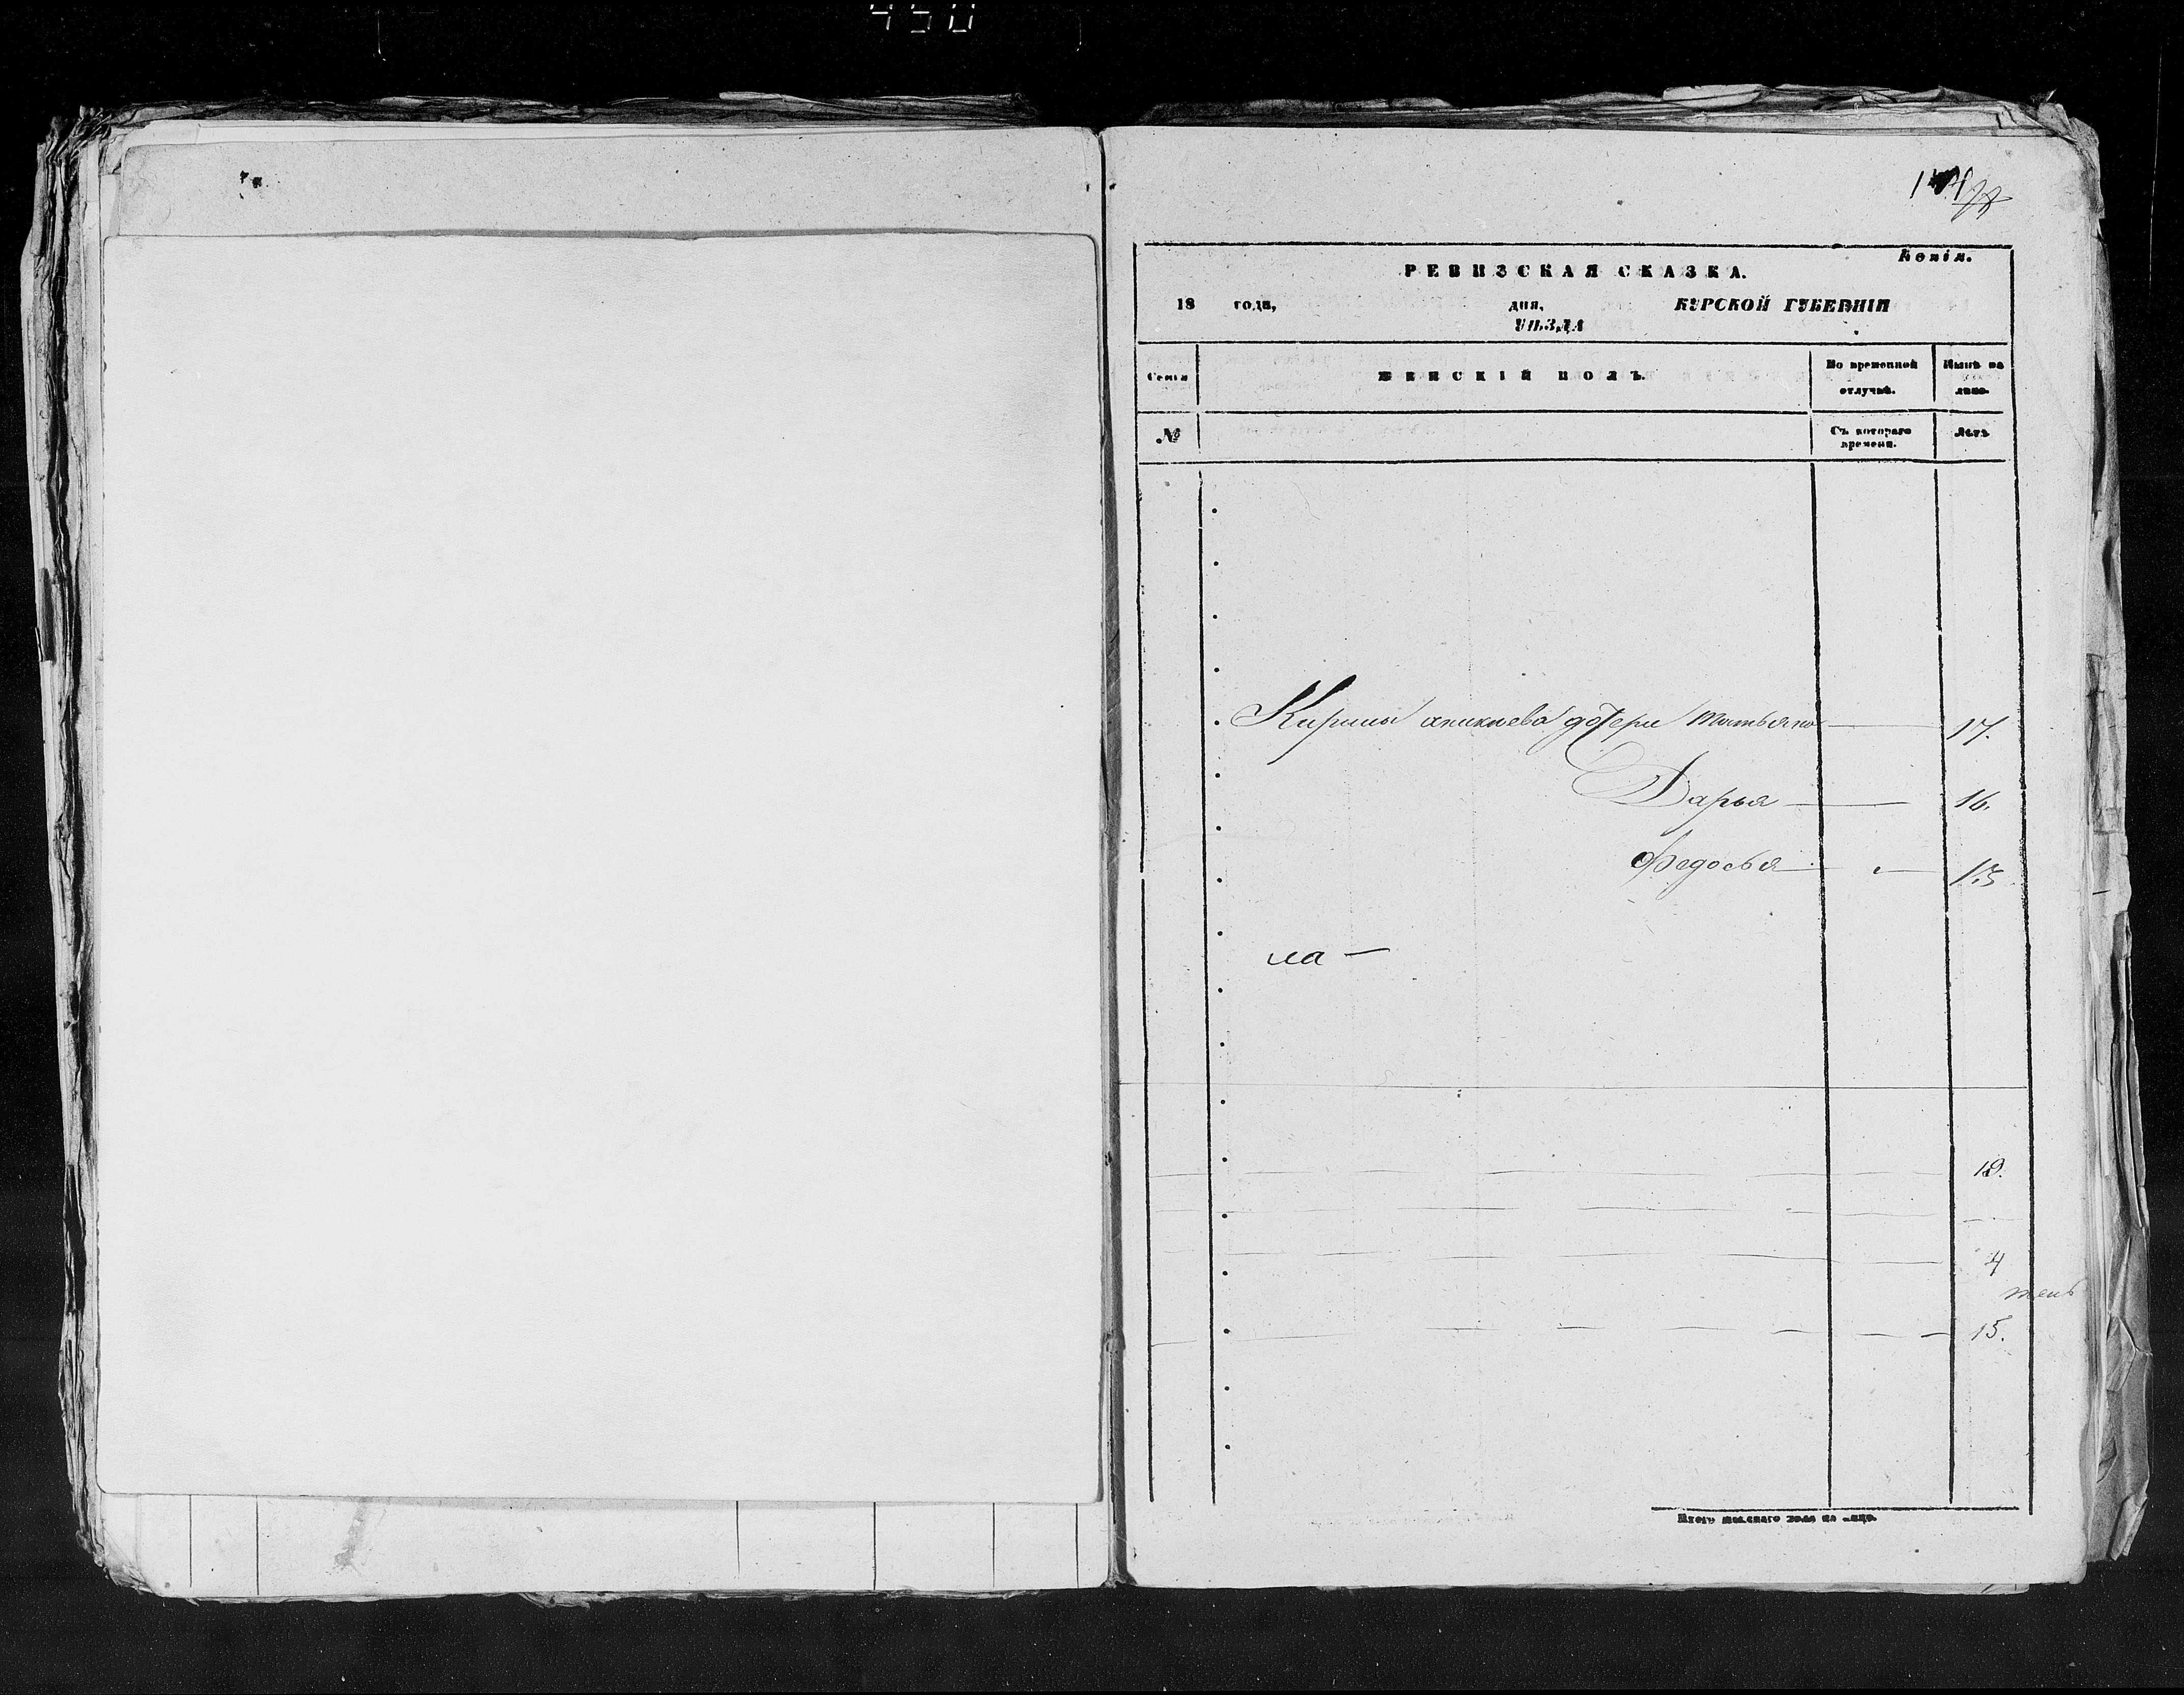 450
Копія.
РЕВИЗСКАЯ СКАЗКА.
18 года, дня, КУРСКОЙ ГУБЕРНІИ
УѢЗДА
Семьи ЖЕНСКІЙ ПОЛЪ. Во временной отлучкѣ. Нынѣ на лицо.
№ Съ котораго времени. Лѣтъ
дочери Татьяна — 17.
Дарья — 16.
Федосья — 13
ла —
18.
4
15.
Итого женскаго пола на лицо.